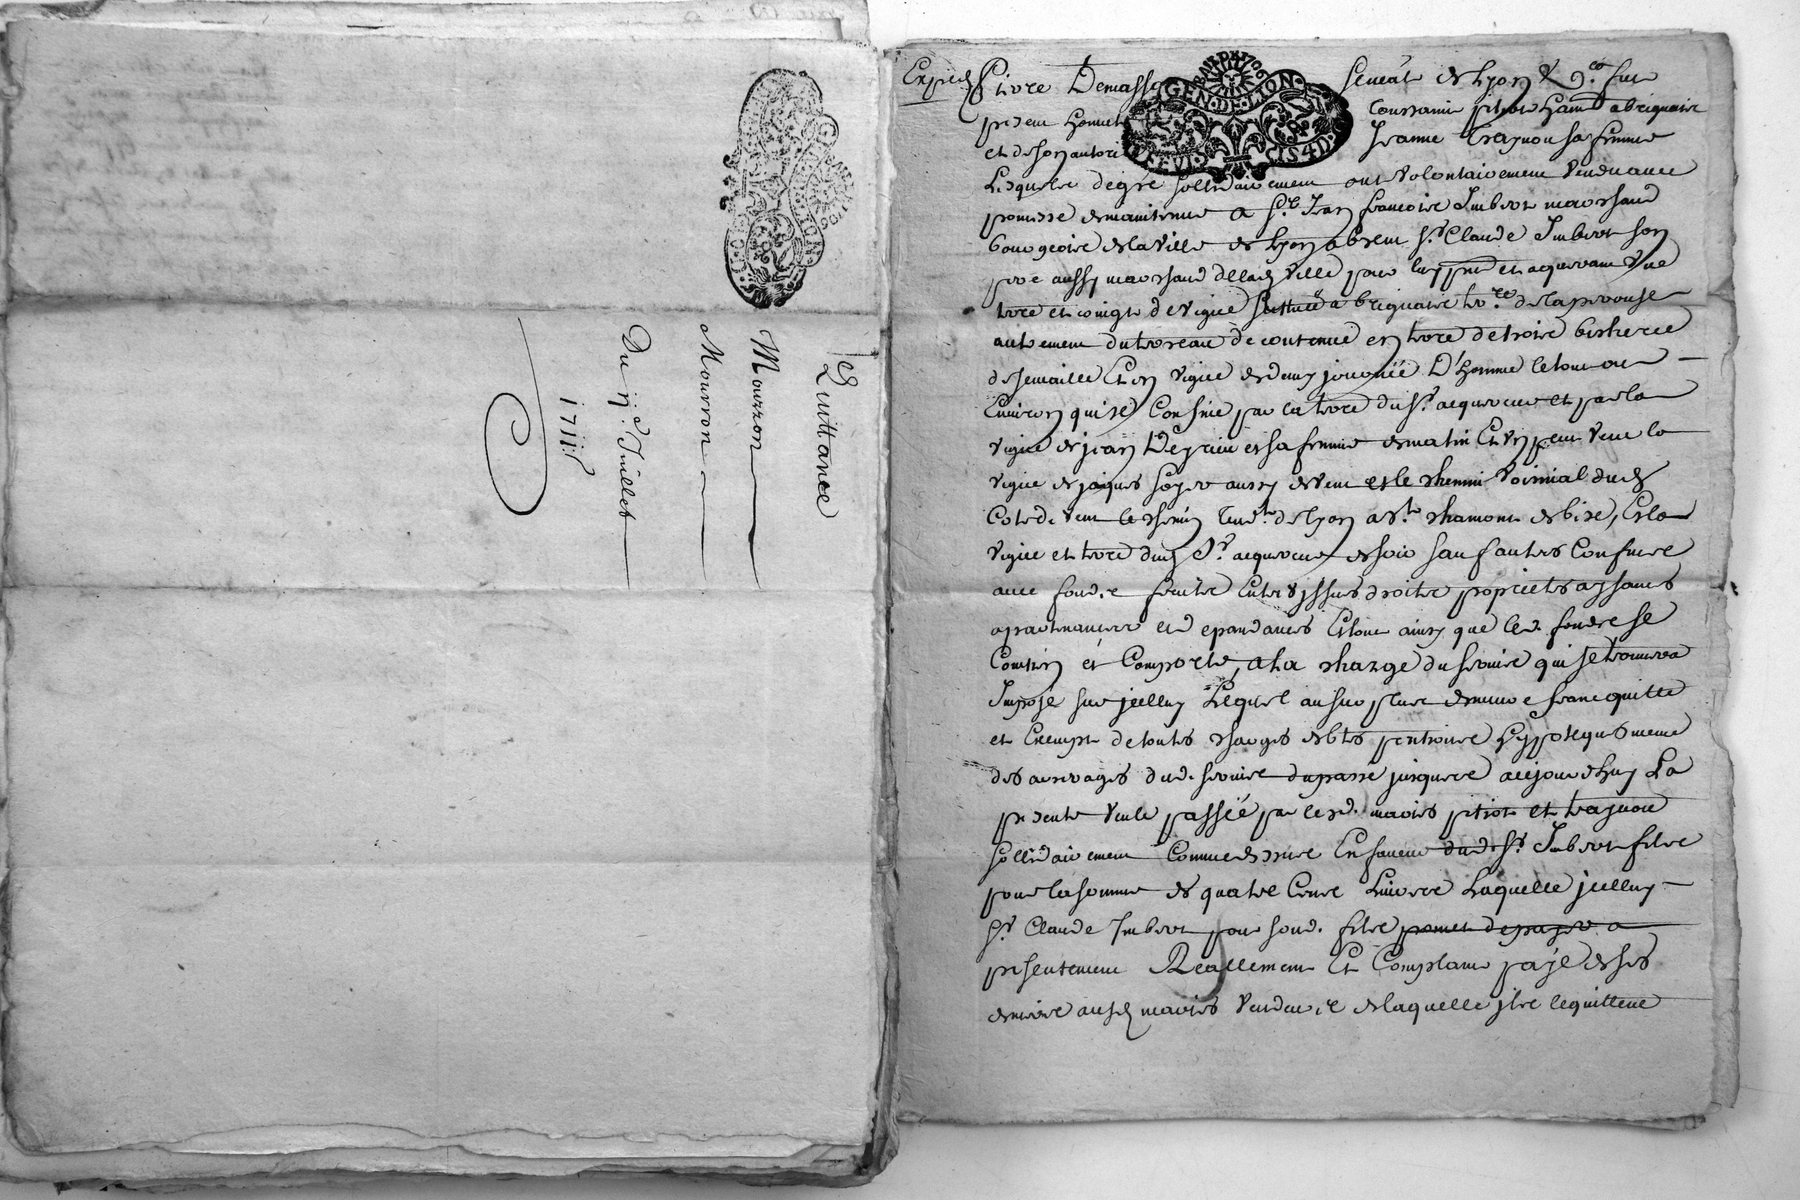 Quittance
Mourron
Mourron
Du 11e Juillet
1711
GEN. DE. LION
Expied Pierre Demasso Seneāl de Lyon & qe fut
present honnete Toussaint pitiot habriquaire
et de son autori Jeanne Trajnou sa femme
Lesquels degré sollidairement ont volontairement vendu avec
promesse de maintenue a Sr Jean francoise Imbert marchand
bourgeoise de la Ville de Lyon absent Sr Claude Imbert son
pere aussy marchand de lad Ville pour luy pnt et aquerant Une
terre et coingt de vigne scittuée a briquaire tere de laperouse
autrement du toreau de contenue en terre de troise bicherée
de semaille Et en vigne de deux journée D'homme le tout ou
Environ qui se Confine par la terre du Sr aquereur et par la
vigne de jean Degrieu et sa femme de matin Et un peu Vent la
vigne de jaques soyer aussy de vent et le chemin Voisinial dud
Coté de Vent le chemin tend.t de Lyon a St chamont de bise, Et la
vigne et terre dud Sr aquereur de soir sauf autres Confinee
avec fond.e fruitee Entrée yssues droitee proprietés aysances
apartenancee et dependances Et tout ainsy que led. fondee se
Contien et Comporte, a la charge du servise qui se trouvera
Imposé sur jcelluy Lequel au surplus demeure franc quitte
et Exempt de toutes charges debtes pentione hypoteques meme
des arrerages dud. servise du passé jusquece aujourdhuy La
presente vente passée par lesd. mariés pitiot et trajnou
sollidairement Comme dessus En faveur dud. Sr Imbert filee
pour la somme de quatre Cent Livree Laquelle jcelluy
Sr Claude Imbert pour sond. filee promet de payer a
presentement Reallement Et Comptant payé de ses
deniere ausd mariés vendeu.e de laquelle jlse le quittene